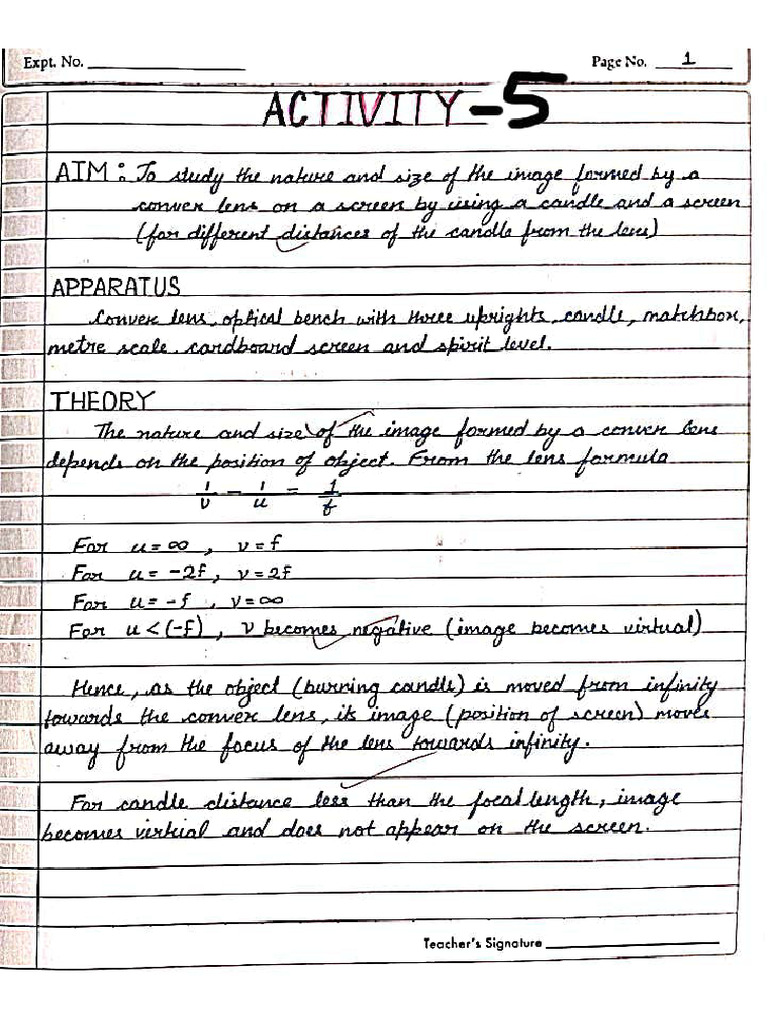 Expt. No.
Page No. 1
ACTIVITY-5
AIM: To study the nature and size of the image formed by a
convex lens on a screen by using a candle and a screen
(for different distances of the candle from the lens)
APPARATUS
Convex lens, optical bench with three uprights, candle, matchbox,
metre scale, cardboard screen and spirit level.
THEORY
The nature and size of the image formed by a convex lens
depends on the position of object. From the lens formula
1/v - 1/u = 1/f
For u = ∞, v = f
For u = -2f, v = 2f
For u = -f, v = ∞
For u < (-f), v becomes negative (image becomes virtual)
Hence, as the object (burning candle) is moved from infinity
towards the convex lens, its image (position of screen) moves
away from the focus of the lens towards infinity.
For candle distance less than the focal length, image
becomes virtual and does not appear on the screen.
Teacher's Signature